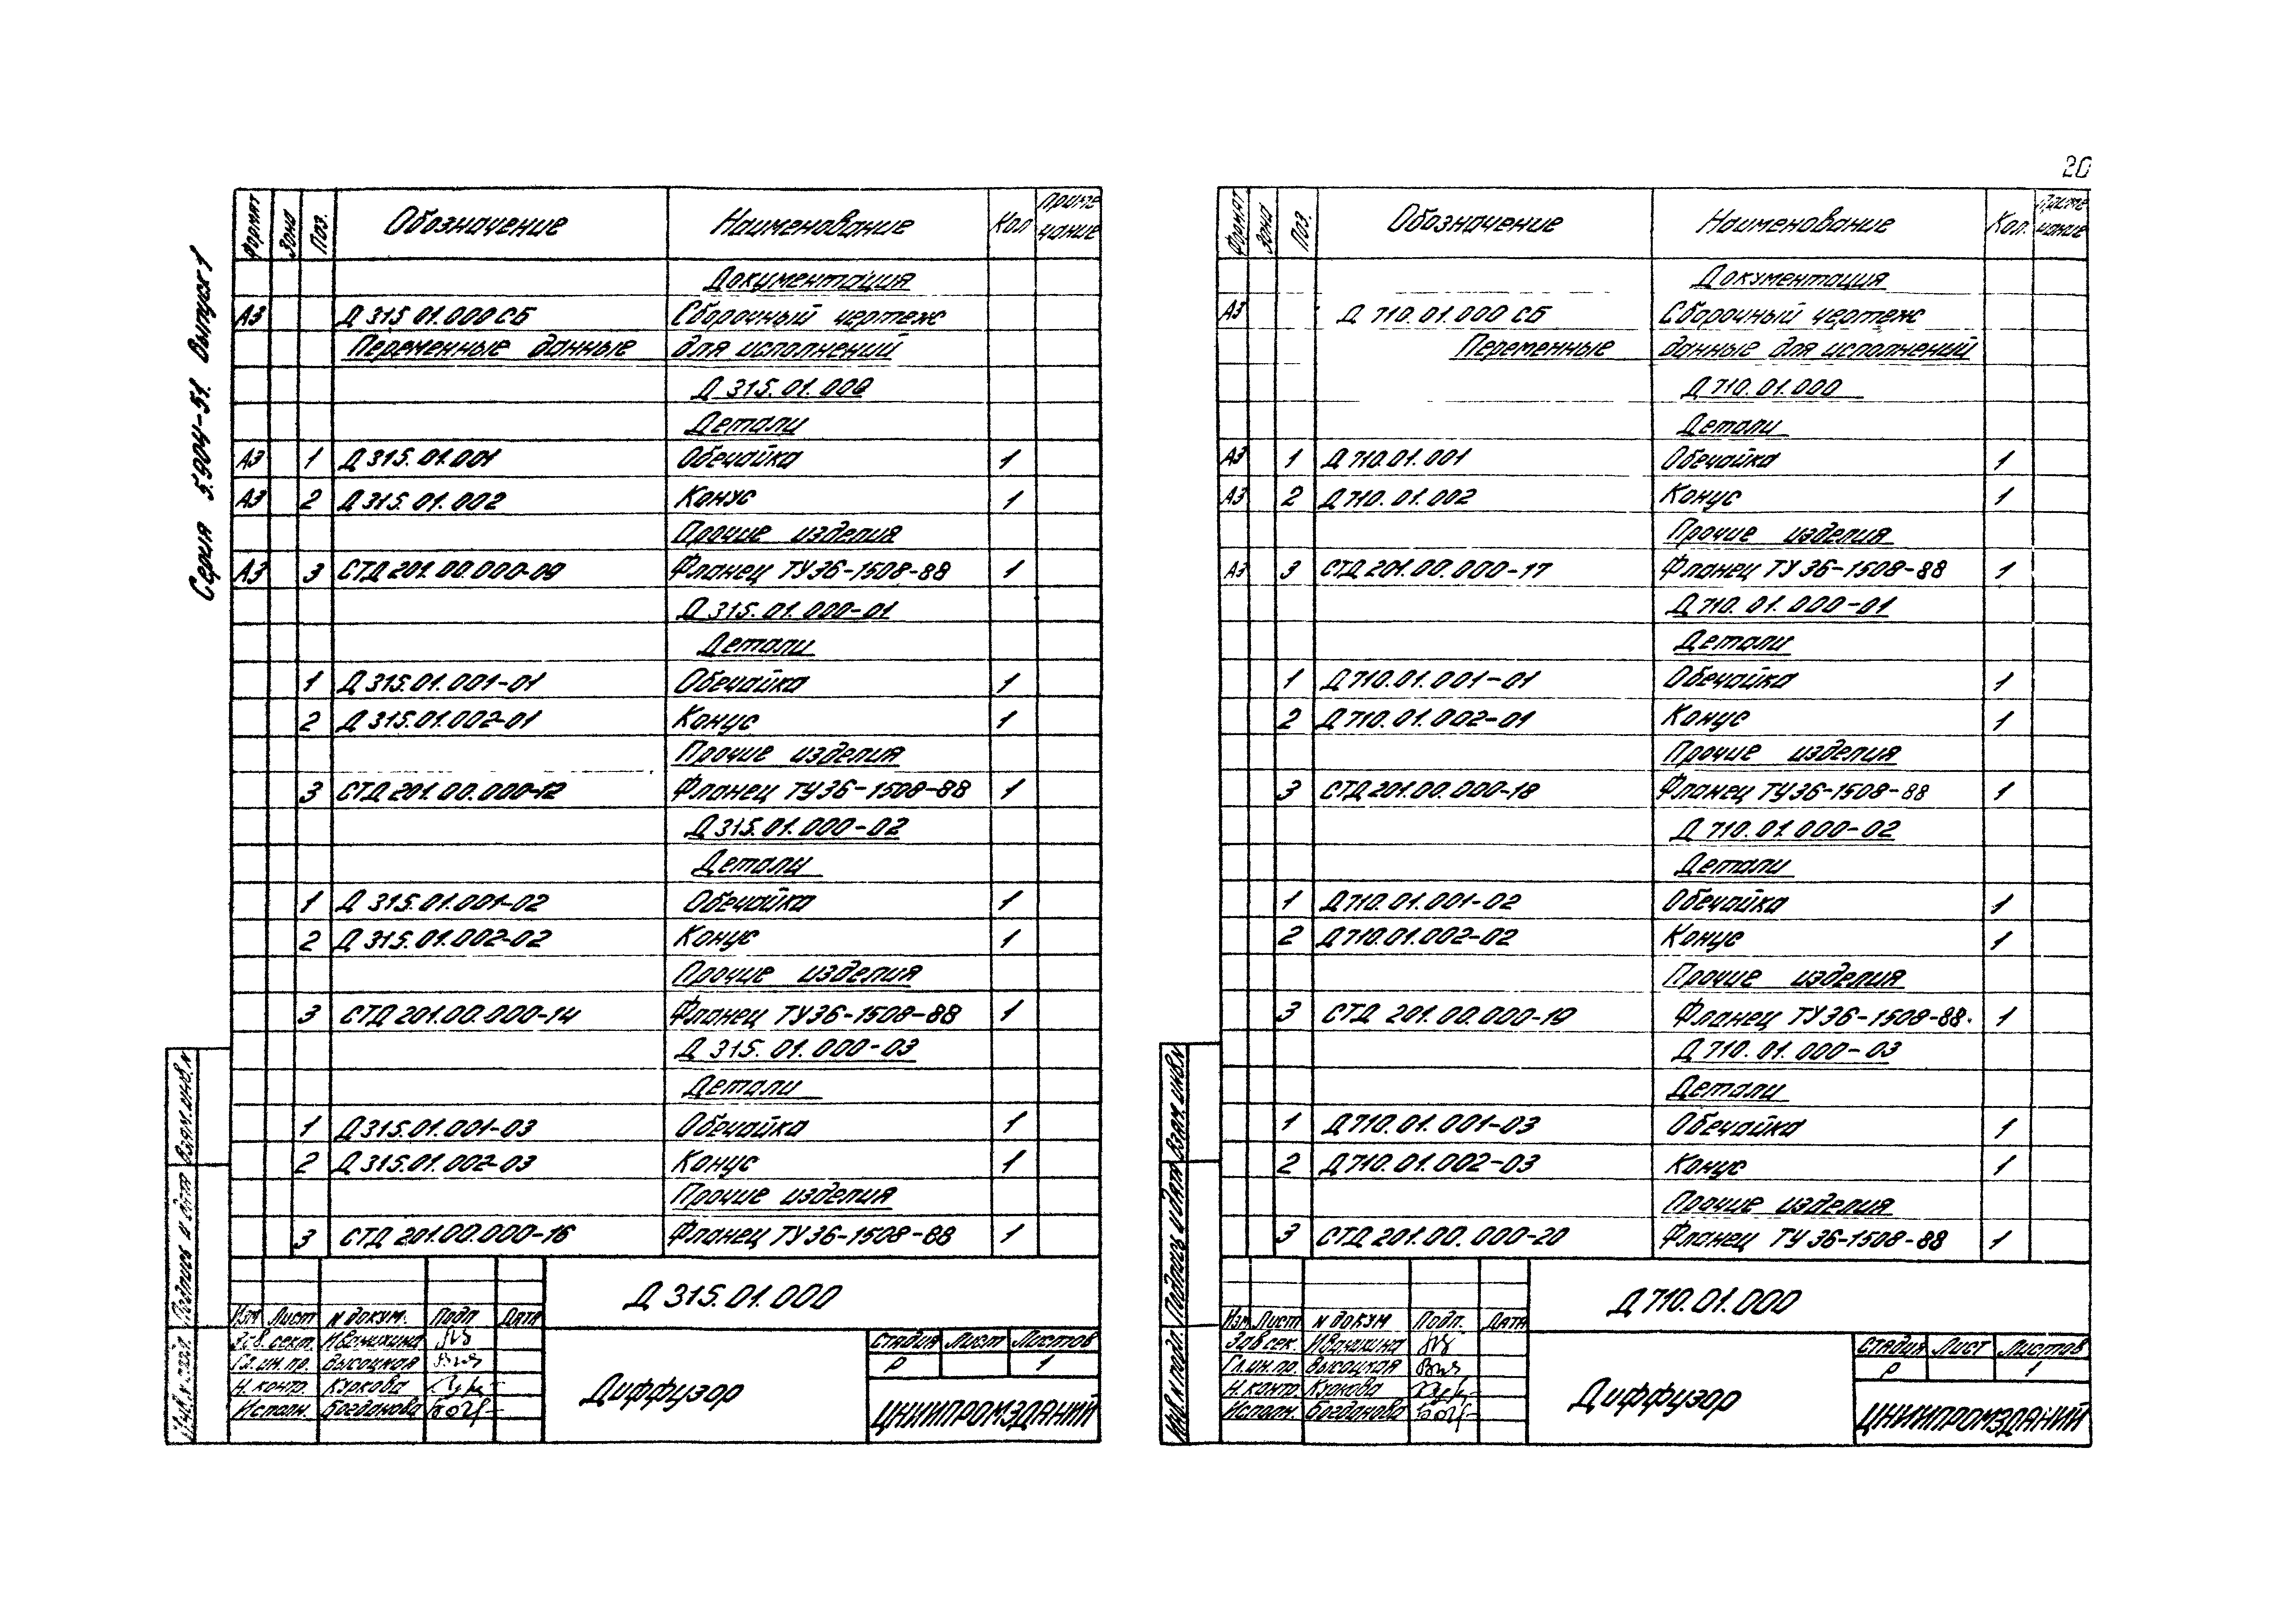 20
Серия 5.904-51. Выпуск 1
Формат Зона Поз. Обозначение Наименование Кол Приме
чание
Документация
А3 Д 315.01.000 СБ Сборочный чертеж
Переменные данные для исполнений
Д 315.01.000
Детали
А3 1 Д 315.01.001 Обечайка 1
А3 2 Д 315.01.002 Конус 1
Прочие изделия
А3 3 СТД 201.00.000-09 Фланец ТУ36-1508-88 1
Д 315.01.000-01
Детали
1 Д 315.01.001-01 Обечайка 1
2 Д 315.01.002-01 Конус 1
Прочие изделия
3 СТД 201.00.000-12 Фланец ТУ36-1508-88 1
Д 315.01.000-02
Детали
1 Д 315.01.001-02 Обечайка 1
2 Д 315.01.002-02 Конус 1
Прочие изделия
3 СТД 201.00.000-14 Фланец ТУ36-1508-88 1
Д 315.01.000-03
Детали
1 Д 315.01.001-03 Обечайка 1
2 Д 315.01.002-03 Конус 1
Прочие изделия
3 СТД 201.00.000-16 Фланец ТУ36-1508-88 1
Взам.инв.N
Подпись и дата
Инв.N подл.
Д 315.01.000
Изм Лист N докум. Подп Дата
Зав. сект. Иванихина
Гл.ин.пр. Высоцкая
Н.контр. Куркова
Исполн. Богданова
Диффузор
Стадия Лист Листов
Р 1
ЦНИИПРОМЗДАНИЙ
Формат Зона Поз. Обозначение Наименование Кол. Приме
чание
Документация
А3 Д 710.01.000 СБ Сборочный чертеж
Переменные данные для исполнений
Д 710.01.000
Детали
А3 1 Д 710.01.001 Обечайка 1
А3 2 Д 710.01.002 Конус 1
Прочие изделия
А3 3 СТД 201.00.000-17 Фланец ТУ 36-1508-88 1
Д 710.01.000-01
Детали
1 Д 710.01.001-01 Обечайка 1
2 Д 710.01.002-01 Конус 1
Прочие изделия
3 СТД 201.00.000-18 Фланец ТУ36-1508-88 1
Д 710.01.000-02
Детали
1 Д 710.01.001-02 Обечайка 1
2 Д 710.01.002-02 Конус 1
Прочие изделия
3 СТД 201.00.000-19 Фланец ТУ36-1508-88. 1
Д 710.01.000-03
Детали
1 Д 710.01.001-03 Обечайка 1
2 Д 710.01.002-03 Конус 1
Прочие изделия
3 СТД 201.00.000-20 Фланец ТУ 36-1508-88 1
Взам.инв.N
Подпись и дата
Инв.N подл.
Д 710.01.000
Изм Лист N докум Подп. Дата
Зав сек. Иванихина
Гл.ин.пр. Высоцкая
Н.контр. Куркова
Исполн. Богданова
Диффузор
Стадия Лист Листов
Р 1
ЦНИИПРОМЗДАНИЙ